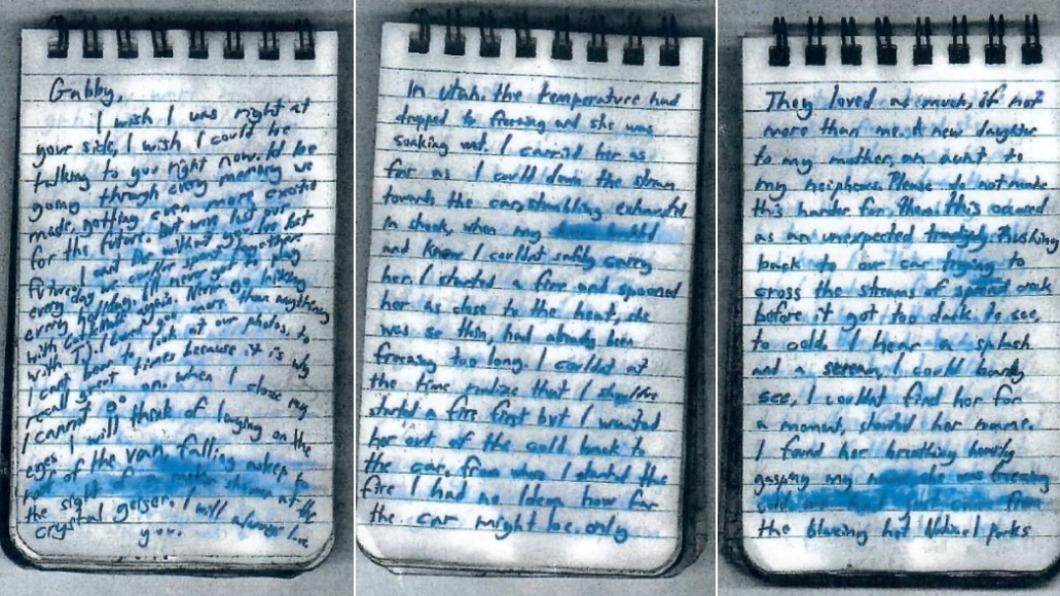 Gabby,
I wish I was right at
your side, I wish I could be
talking to you right now. Id be
going through every memory we
made, getting even more excited
for the future. But weve lost our
future. I cant live without you. Ive lost
every day we could've spent together,
every holiday. Ill never get to play
with again. Never go hiking
with TJ. I loved you more than anything
I cant bear to look at our photos, to
recall great times because it is why
I cannot go on. when I close my
eyes I will think of laughing on the
roof of the van, falling asleep to
the sight of at the
crystal geiser. I will always love
you.
In Utah. the temperature had
dropped to freezing and she was
soaking wet. I carried her as
far as I could down the stream
towards the car, stumbling exhausted
in shock, when my
and knew I couldnt safely carry
her. I started a fire and spooned
her as close to the heat, she
was so thin, had already been
freezing too long. I couldnt at
the time realize that I should've
started a fire first but I wanted
her out of the cold back to
the car. from where I started the
fire I had no Idea how far
the car might be. only
They loved as much, if not
more than me. A new daughter
to my mother, an aunt to
my nephews. Please do not make
this harder for them, this occured
as an unexpected tragedy. Rushing
back to our car trying to
cross the streams of spread creek
before it got too dark to see,
to cold. I hear a splash
and a scream. I could barely
see, I couldnt find her for
a moment, shouted her name.
I found her breathing heavily
gasping my she was freezing
from
the blazing hot National Parks